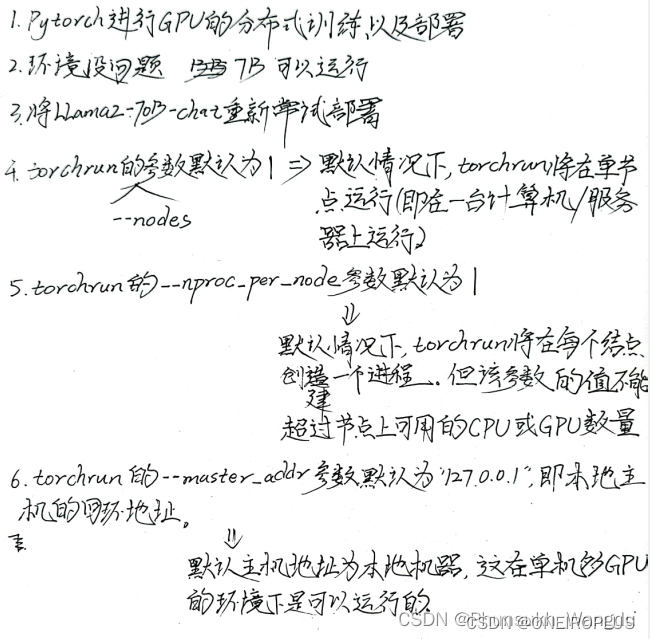 1.Pytorch进行GPU的分布式训练,以及部署
2.环境没问题 7B 可以运行
3.将LLama2-70B-chat重新尝试部署
4.torchrun的参数默认为1 => 默认情况下,torchrun将在单节
--nodes
点运行(即在一台计算机/服务
器上运行)
5.torchrun的--nproc_per_node参数默认为1
⇓
默认情况下,torchrun将在每个结点
创建一个进程.但该参数的值不能
超过节点上可用的CPU或GPU数量
6.torchrun的--master_addr参数默认为"127.0.0.1",即本地主
机的回环地址。
⇓
默认主机地址为本地机器,这在单机多GPU
的环境下是可以运行的.
CSDN @ONEIROPEUS